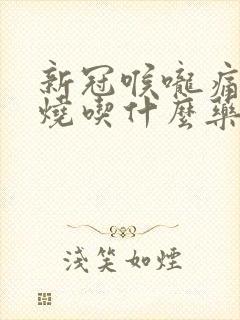 新冠喉嚨痛
燒喫什麼藥
淺笑如煙